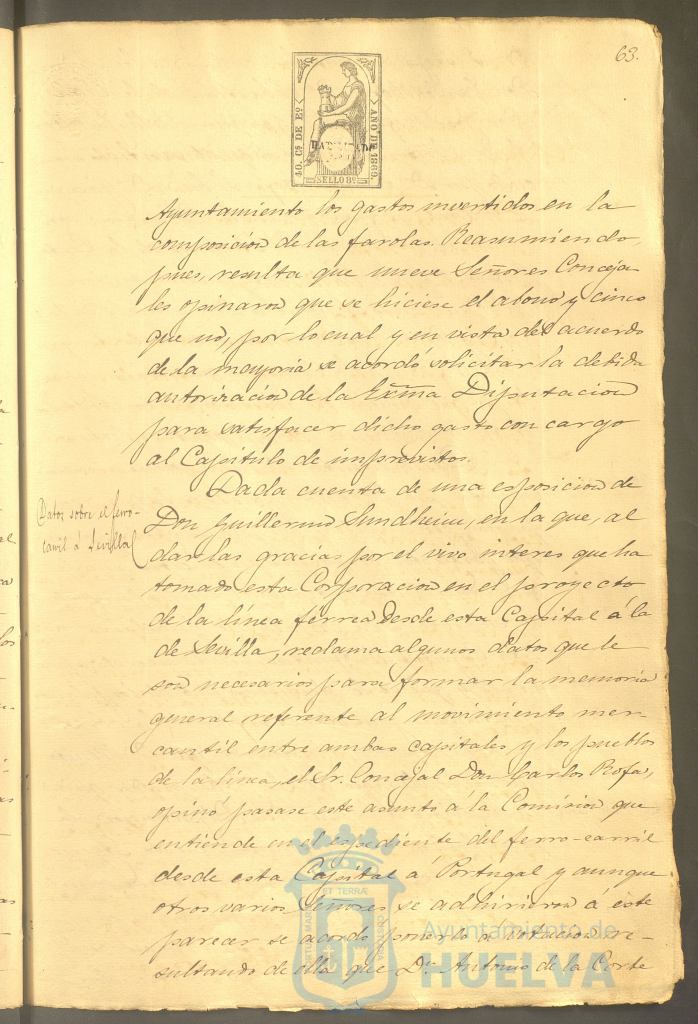 63.
40. Cs DE Eo
AÑO DE 1869.
HABILITADO
SELLO 8o
Ayuntamiento los gastos invertidos en la
composicion de las farolas. Reasumiendo,
pues, resulta que nueve Señores Conceja-
les opinaron que se hiciese el abono y cinco
que no, por lo cual y en vista del acuerdo
de la mayoria se acordó solicitar la debida
autorizacion de la Exma Diputacion
para satisfacer dicho gasto con cargo
al Capitulo de imprevistos.
Datos sobre el ferro-
carril á Sevilla
Dada cuenta de una esposicion de
Don Guillermo Sundheim, en la que, al
dar las gracias por el vivo interes que ha
tomado esta Corporacion en el proyecto
de la linea ferrea desde esta Capital á la
de Sevilla, reclama algunos datos que le
son necesarios para formar la memoria
general referente al movimiento mer-
cantil entre ambas capitales y los pueblos
de la linea, el Sr. Concejal Don Carlos Rofa,
opinó pasase este asunto á la Comision que
entiende en el espediente del ferro-carril
desde esta Capital á Portugal y aunque
otros varios Señores se adhirieron á este
parecer se acordó ponerlo á votacion re-
sultando de ella que Dn. Antonio de la Corte
Ayuntamiento de
HUELVA